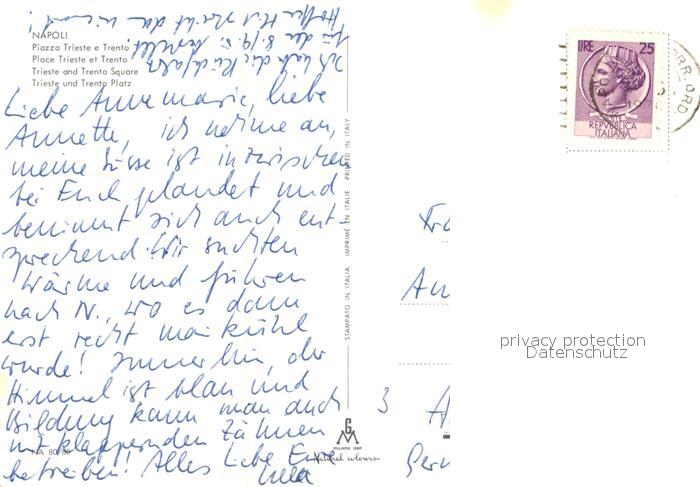 NAPOLI
Piazza Trieste e Trento
Place Trieste et Trento
Trieste and Trento Square
Trieste und Trento Platz
Liebe Annemarie, liebe
Annette, ich nehme an,
meine Süsse ist inzwischen
bei Euch gelandet und
benimmt sich auch ent-
sprechend. Wir suchten
Wärme und fuhren
nach N., wo es dann
erst recht maikühl
wurde! Immerhin, der
Himmel ist blau und
Bildung kann man auch
mit klappernden Zähnen
betreiben! Alles Liebe Eure
Ich hab die Rückfahrt
für den 8./9. 5. bestellt.
STAMPATO IN ITALIA IMPRIMÉ EN ITALIE PRINTED IN ITALY
N.A. 80/68
MILANO DEP.
Natural colours
LIRE 25
REPVBBLICA
ITALIANA
CORR. ORD
3
privacy protection
Datenschutz